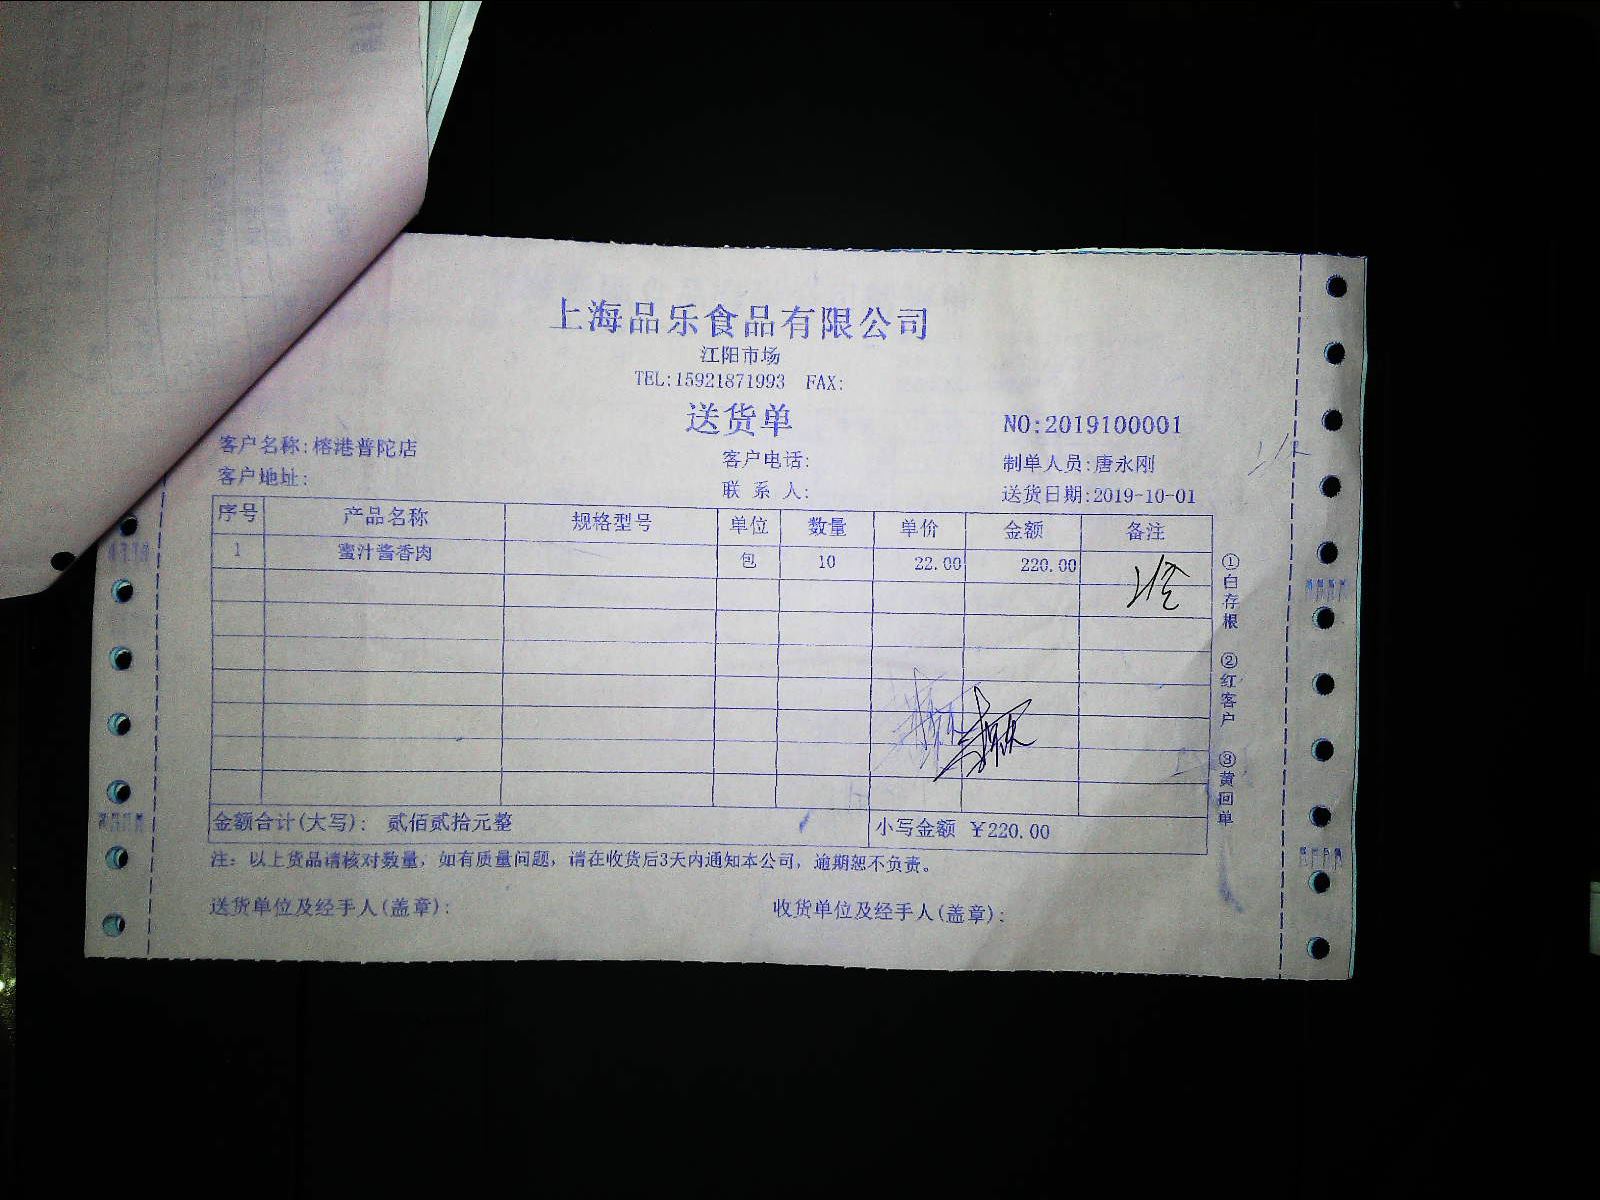 上海品乐食品有限公司
江阳市场
TEL:15921871993 FAX:
送货单
NO:2019100001
客户名称:榕港普陀店
客户电话:
制单人员:唐永刚
客户地址:
联 系 人:
送货日期:2019-10-01
序号 产品名称 规格型号 单位 数量 单价 金额 备注
1 蜜汁酱香肉 包 10 22.00 220.00
金额合计(大写): 贰佰贰拾元整 小写金额 ¥220.00
注: 以上货品请核对数量, 如有质量问题, 请在收货后3天内通知本公司, 逾期恕不负责。
送货单位及经手人(盖章):
收货单位及经手人(盖章):
①白存根 ②红客户 ③黄回单